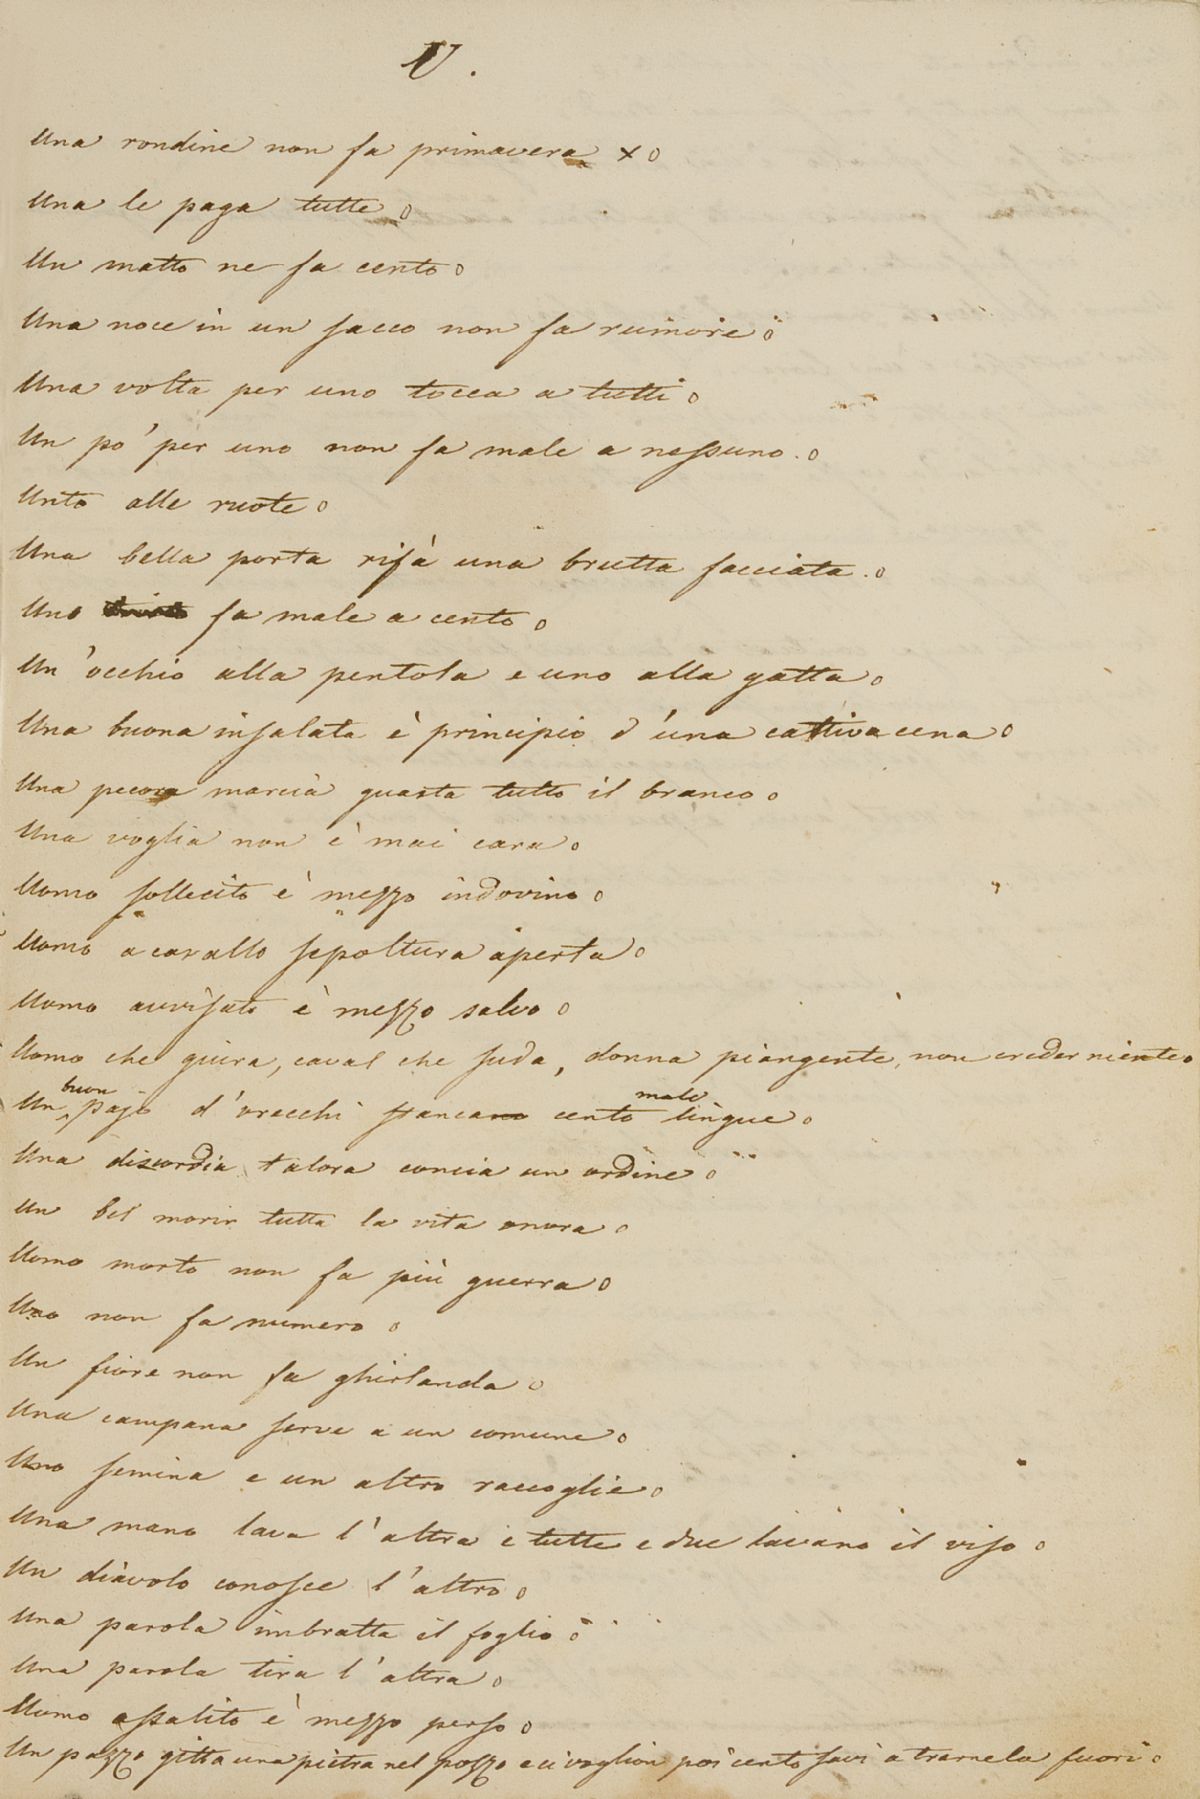 U.
Una rondine non fa primavera x o
Una le paga tutte o
Un matto ne fa cento o
Una noce in un sacco non fa rumore o
Una volta per uno tocca a tutti o
Un po' per uno non fa male a nessuno. o
Unto alle ruote o
Una bella porta rifà una brutta facciata. o
Uno fa male a cento o
Un'occhio alla pentola e uno alla gatta o
Una buona insalata è principio d'una cattiva cena o
Una pecora marcia guasta tutto il branco o
Una voglia non è mai cara o
Uomo sollecito è mezzo indovino o
Uomo a cavallo sepoltura aperta o
Uomo avvisato è mezzo salvo o
Uomo che giura, caval che suda, donna piangente, non creder niente o
Un buon pajo d'orecchi stancano cento male lingue o
Una discordia talora concia un ordine o
Un bel morir tutta la vita onora o
Uomo morto non fa più guerra o
Uno non fa numero o
Un fiore non fa ghirlanda o
Una campana serve a un comune o
Uno semina e un altro raccoglie o
Una mano lava l'altra e tutte e due lavano il viso o
Un diavolo conosce l'altro o
Una parola imbratta il foglio o
Una parola tira l'altra o
Uomo assalito è mezzo perso o
Un pazzo gitta una pietra nel pozzo e ci voglion poi cento savi a trarnela fuori o